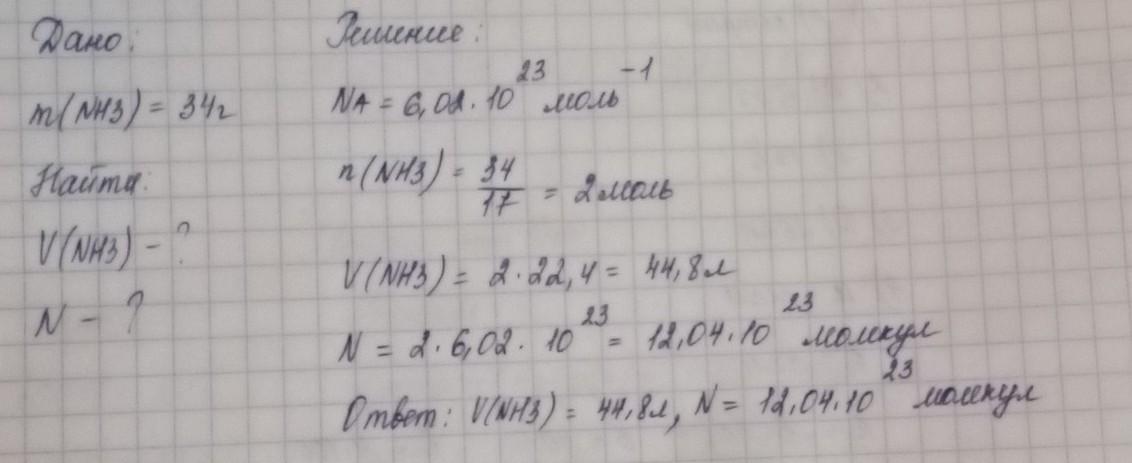 Дано:
m(NH3) = 34г
Найти:
V(NH3) - ?
N - ?
Решение:
NA = 6,02·10²³ моль⁻¹
n(NH3) = 34/17 = 2 моль
V(NH3) = 2·22,4 = 44,8л
N = 2·6,02·10²³ = 12,04·10²³ молекул
Ответ: V(NH3) = 44,8л, N = 12,04·10²³ молекул